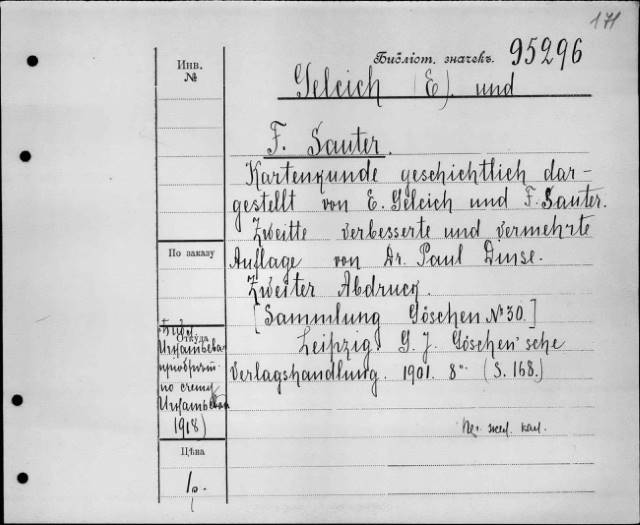 171
Библіот. значекъ. 95296
Инв.
№
Geleich (E). und
F. Sauter.
Kartenkunde geschichtlich dar-
gestellt von E. Geleich und F. Sauter.
Zweitte verbesserte und vermehrte
Auflage von Dr. Paul Dinse.
Zweiter Abdruck.
[Sammlung Göschen № 30.]
Leipzig. G. J. Göschen'sche
Verlagshandlung. 1901. 8° (S. 168.)
По заказу
Откуда
Библ.
Игнатьева
по счету
Игнатьева
1918)
Цѣна
1 р.
кал.